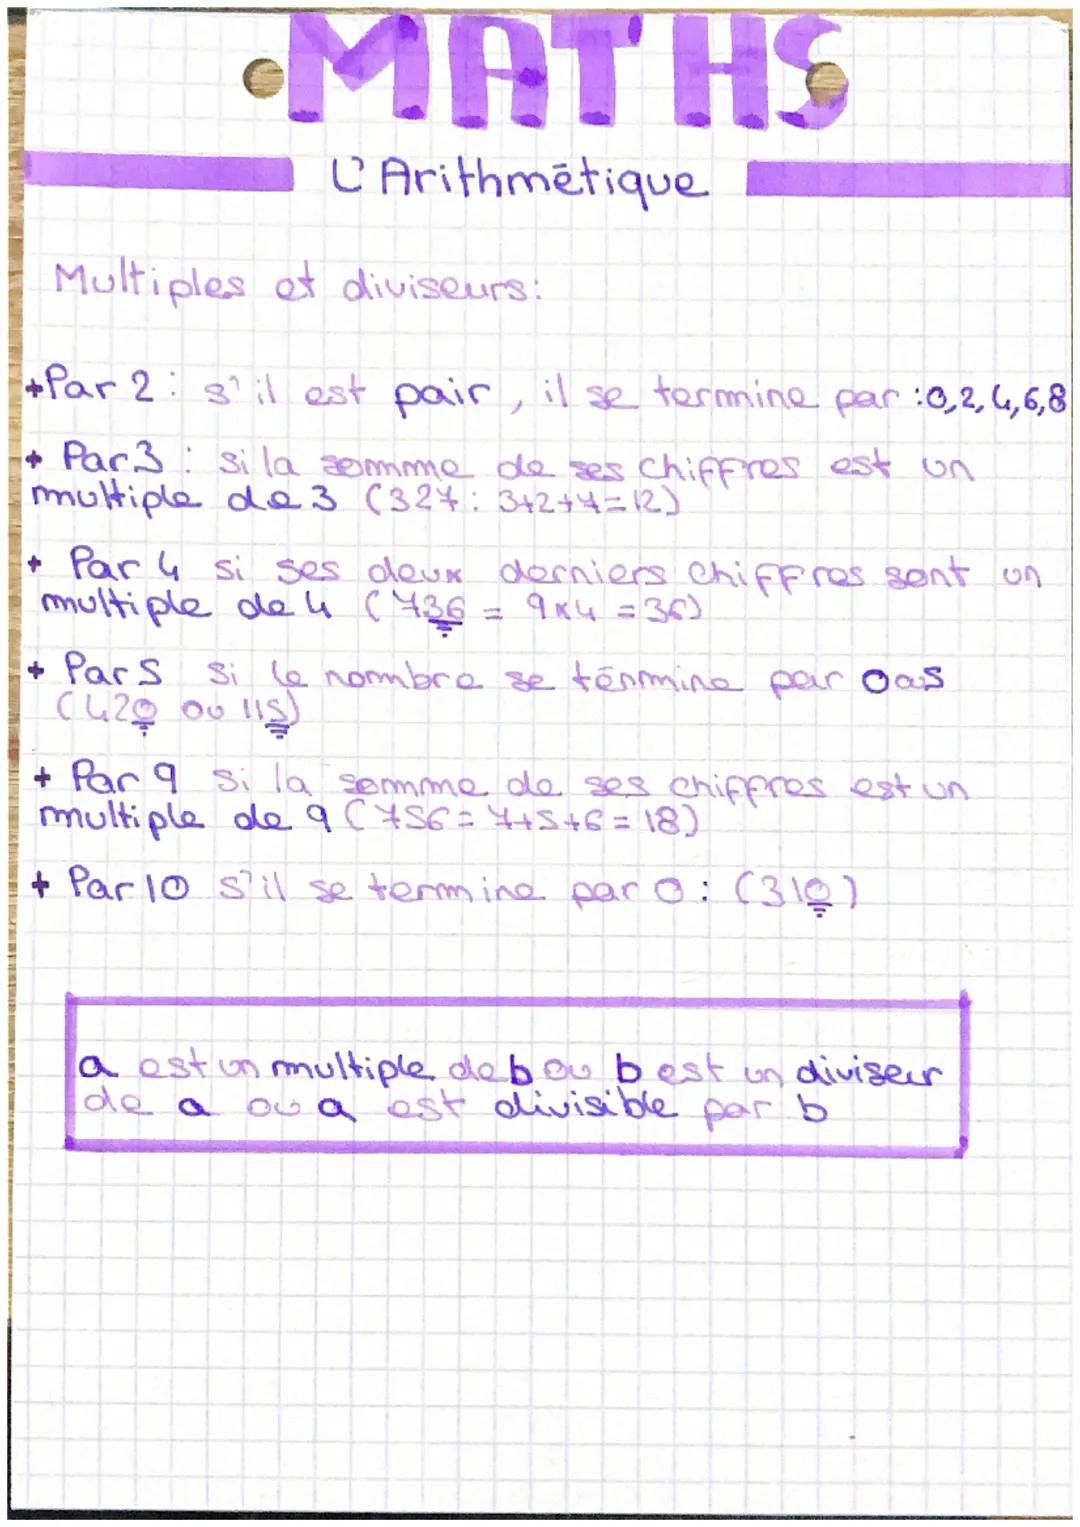 MATHS
L'Arithmétique
Multiples et diviseurs:
+Par 2 : s'il est pair, il se termine par :0,2,4,6,8
+ Par 3 : si la somme de ses chiffres est un
multiple de 3 (327 : 3+2+7=12)
+ Par 4 si ses deux derniers chiffres sont un
multiple de 4 (736 = 9x4 =36)
+ Par 5 si le nombre se términe par 0 a 5
(420 ou 115)
+ Par 9 si la somme de ses chiffres est un
multiple de 9 (756= 7+5+6= 18)
+ Par 10 s'il se termine par 0 : (310)
a est un multiple de b ou b est un diviseur
de a ou a est divisible par b